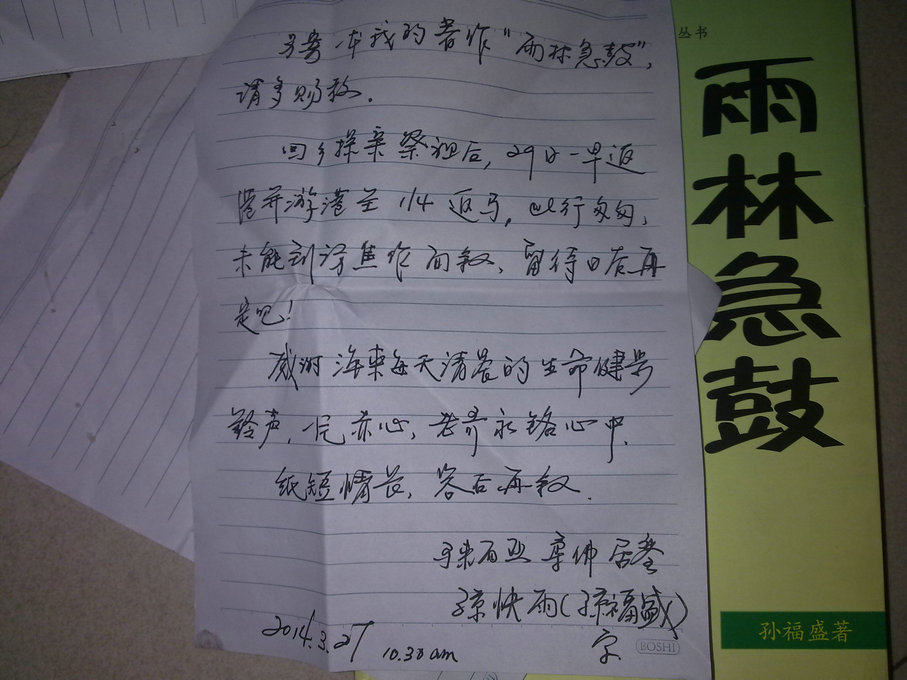 另寄一本我的著作“雨林急鼓”,
请多赐教。
回乡探亲祭祖后,29日一早返
港并游港至 1/4 返马,此行匆匆,
未能到访焦作面叙,留待日后再
是吧!
感谢海来每天清晨的生命健号
铃声,一片赤心,老乔永铭心中。
纸短情长,容后再叙。
马来西亚 柔佛 居銮
孙快雨(孙福盛)
字
2014.3.27
10.30 am
BOSHI
丛书
雨林急鼓
孙福盛著